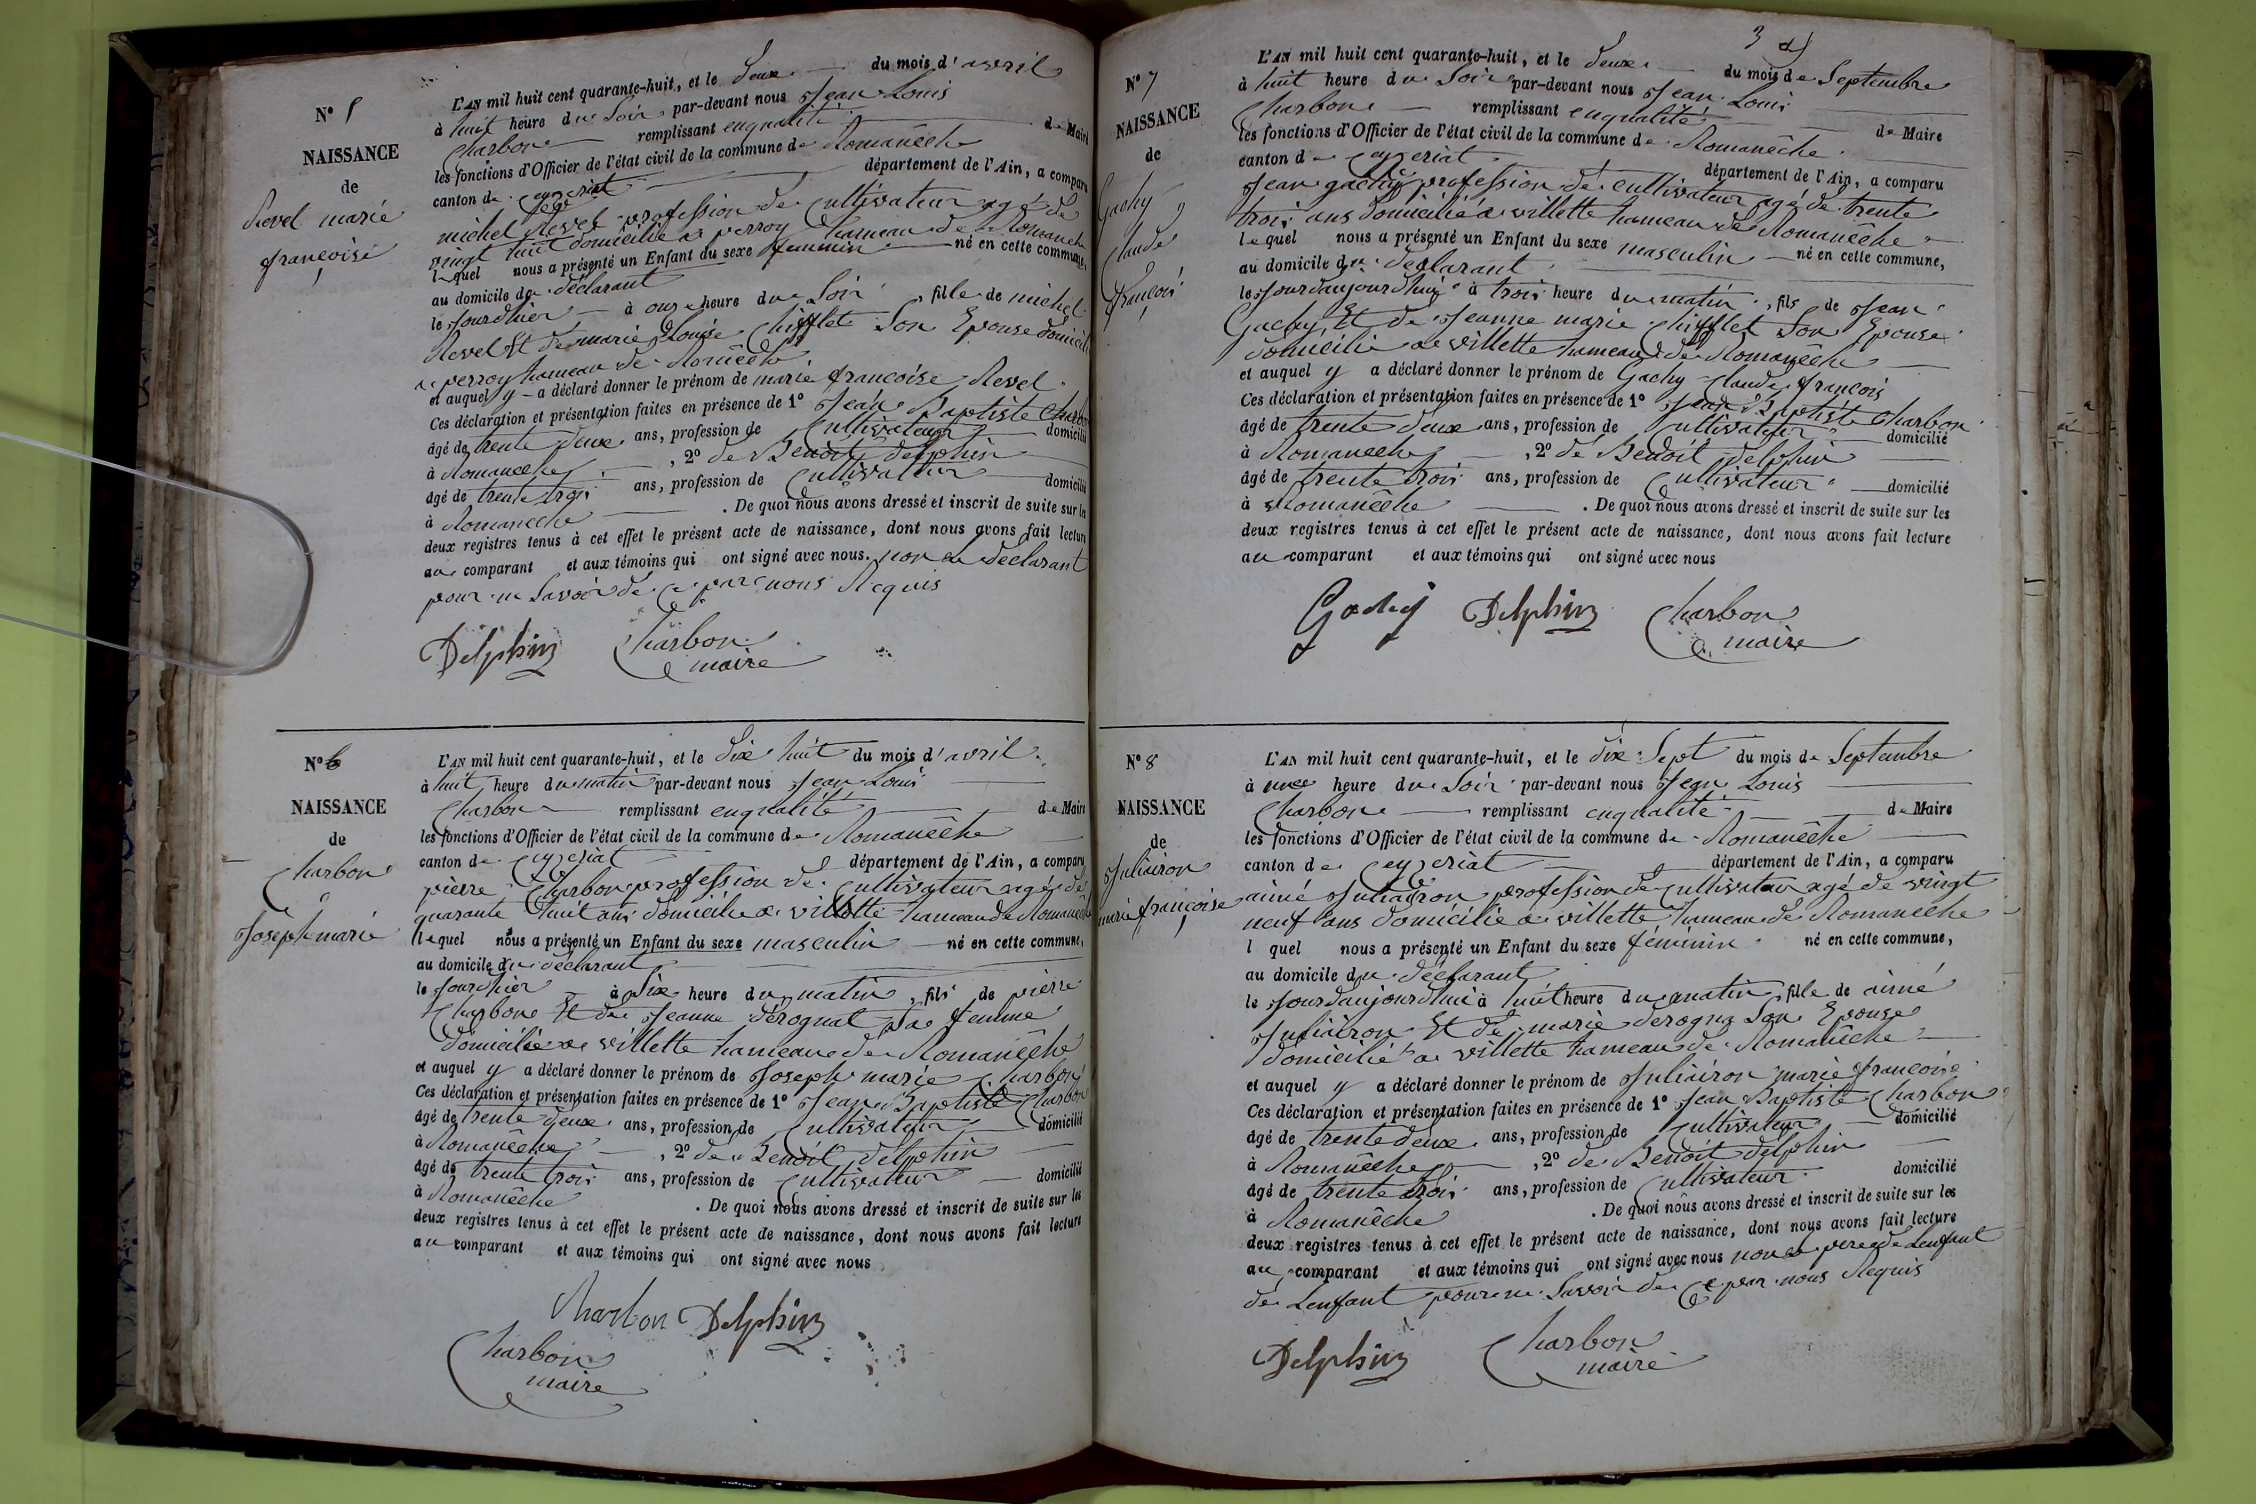 N° 5
NAISSANCE
de
Revel marie
françoise
L'AN mil huit cent quarante-huit, et le deux du mois d'avril
à huit heure du Soir par-devant nous Jean Louis
Charbon remplissant en qualité de Maire
les fonctions d'Officier de l'état civil de la commune de Romanêche
canton de Ceyzeriat département de l'Ain, a comparu
michel Revel profession de Cultivateur agé de
vingt huit domicilié a perroy hameau de Romaneche
lequel nous a présenté un Enfant du sexe feminin né en cette commune,
au domicile du déclarant
le Jour d'hier à onze heure du Soir, fille de michel
Revel Et de marie Louise Chifflet Son Epouse domicilié
a perroy hameau de Romêche
et auquel y a déclaré donner le prénom de marie françoise Revel
Ces déclaration et présentation faites en présence de 1° Jean Baptiste Charbon
âgé de trente deux ans, profession de Cultivateur domicilié
à Romaneche, 2° de Benoit delphin
âgé de trente trois ans, profession de Cultivateur domicilié
à Romaneche. De quoi nous avons dressé et inscrit de suite sur les
deux registres tenus à cet effet le présent acte de naissance, dont nous avons fait lecture
au comparant et aux témoins qui ont signé avec nous. non le déclarant
pour ne Savoir de ce par nous Requis
Delphin Charbon
maire
N° 6
NAISSANCE
de
Charbon
Joseph marie
L'AN mil huit cent quarante-huit, et le dix huit du mois d'avril
à huit heure du matin par-devant nous Jean Louis
Charbon remplissant en qualité de Maire
les fonctions d'Officier de l'état civil de la commune de Romanêche
canton de Ceyzeriat département de l'Ain, a comparu
pierre Charbon profession de Cultivateur agé de
quarante huit ans domicilie a villette hameau de Romaneche
lequel nous a présenté un Enfant du sexe masculin né en cette commune,
au domicile du déclarant
le Jour d'hier à Six heure du matin, fils de pierre
Charbon Et de Jeanne dérognat Sa femme
domicilie a villette hameau de Romanêche
et auquel y a déclaré donner le prénom de Joseph marie Charbon
Ces déclaration et présentation faites en présence de 1° Jean Baptiste Charbon
âgé de trente deux ans, profession de Cultivateur domicilié
à Romanêche, 2° de Benoit delphin
âgé de trente trois ans, profession de Cultivateur domicilié
à Romanêche. De quoi nous avons dressé et inscrit de suite sur les
deux registres tenus à cet effet le présent acte de naissance, dont nous avons fait lecture
au comparant et aux témoins qui ont signé avec nous
Charbon Delphin
Charbon
maire
3
N° 7
NAISSANCE
de
Gachy
Claude
françois
L'AN mil huit cent quarante-huit, et le deux du mois de Septembre
à huit heure du Soir par-devant nous Jean Louis
Charbon remplissant en qualité de Maire
les fonctions d'Officier de l'état civil de la commune de Romanêche
canton de Ceyzeriat département de l'Ain, a comparu
Jean gachy profession de Cultivateur agé de trente
trois ans domicilié a villette hameau de Romanêche
lequel nous a présenté un Enfant du sexe masculin né en cette commune,
au domicile du déclarant
le Jourdaujourdhuy à trois heure du matin, fils de Jean
Gachy Et de Jeanne marie Chifflet Son Epouse
domicilié a villette hameau de Romanêche
et auquel y a déclaré donner le prénom de Gachy Claude françois
Ces déclaration et présentation faites en présence de 1° Jean Baptiste Charbon
âgé de trente deux ans, profession de Cultivateur domicilié
à Romaneche, 2° de Benoit delphin
âgé de trente trois ans, profession de Cultivateur domicilié
à Romanêche. De quoi nous avons dressé et inscrit de suite sur les
deux registres tenus à cet effet le présent acte de naissance, dont nous avons fait lecture
au comparant et aux témoins qui ont signé avec nous
Gachy Delphin Charbon
maire
N° 8
NAISSANCE
de
Juliairon
marie françoise
L'AN mil huit cent quarante-huit, et le dix Sept du mois de Septembre
à une heure du Soir par-devant nous Jean Louis
Charbon remplissant en qualité de Maire
les fonctions d'Officier de l'état civil de la commune de Romanêche
canton de Ceyzeriat département de l'Ain, a comparu
aimé Juliairon profession de Cultivateur agé de vingt
neuf ans domicilié a villette hameau de Romaneche
l quel nous a présenté un Enfant du sexe féminin né en cette commune,
au domicile du déclarant
le Jourdaujourdhui à huit heure du matin, fille de aimé
Juliairon Et de marie derognz Son Epouse
domicilié a villette hameau de Romanêche
et auquel y a déclaré donner le prénom de Juliairon marie françoise
Ces déclaration et présentation faites en présence de 1° Jean Baptiste Charbon
âgé de trente deux ans, profession de Cultivateur domicilié
à Romanêche, 2° de Benoit delphin
âgé de trente trois ans, profession de Cultivateur domicilié
à Romanêche. De quoi nous avons dressé et inscrit de suite sur les
deux registres tenus à cet effet le présent acte de naissance, dont nous avons fait lecture
au comparant et aux témoins qui ont signé avec nous non le pere de Lenfant
de Lenfant pour ne Savoir de Ce par nous Requis
Delphin Charbon
maire